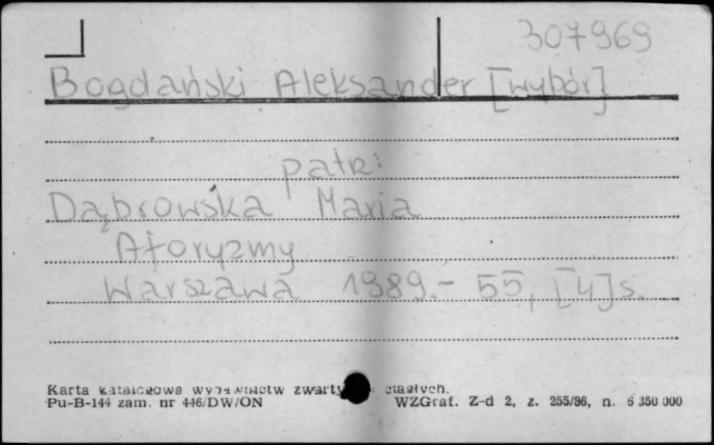 307969
Bogdański Aleksander [wybór]
patrz:
Dąbrowska Maria
Aforyzmy
Warszawa 1989.- 55, [4] s.
Karta katalogowa wydawnictw zwartych ciągłych.
Pu-B-144 zam. nr 446/DW/ON WZGraf. Z-d 2, z. 255/86, n. 6 350 000